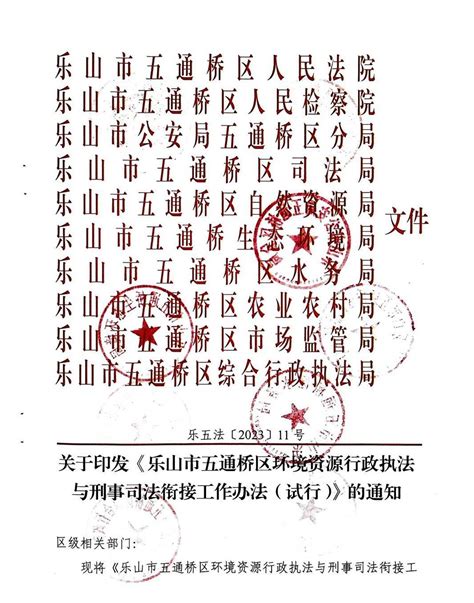 乐山市五通桥区人民法院
乐山市五通桥区人民检察院
乐山市公安局五通桥区分局
乐山市五通桥区司法局
乐山市五通桥区自然资源局
乐山市五通桥生态环境局
乐山市五通桥区水务局
乐山市五通桥区农业农村局
乐山市五通桥区市场监管局
乐山市五通桥区综合行政执法局
文件
乐五法〔2023〕11号
关于印发《乐山市五通桥区环境资源行政执法
与刑事司法衔接工作办法（试行）》的通知
区级相关部门：
现将《乐山市五通桥区环境资源行政执法与刑事司法衔接工